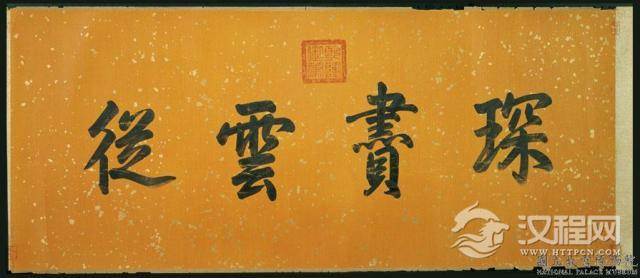 琛賮雲從
汉程网
WWW.HTTPCN.COM
國立故宮博物院
NATIONAL PALACE MUSEUM